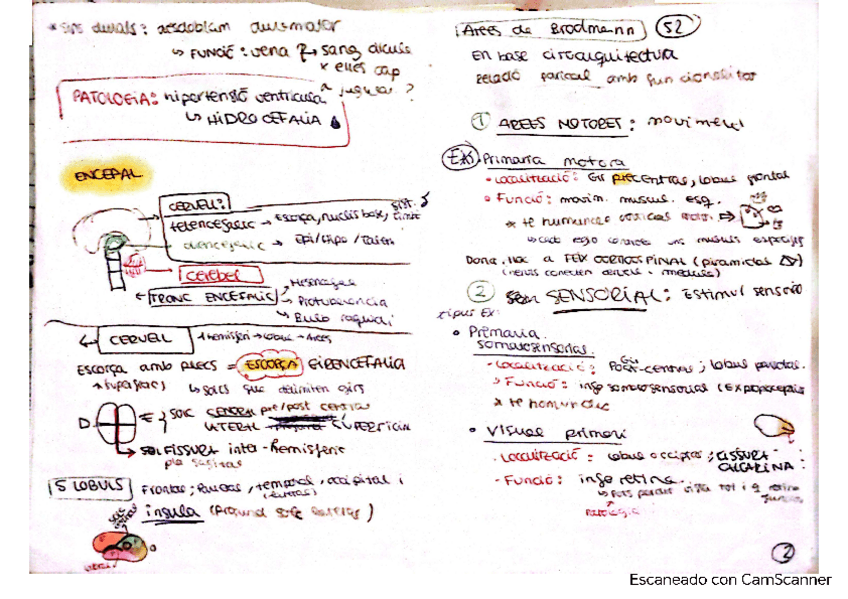 * sins durals : desdoblam duramater
↳ FUNCIÓ : vena → sang
x elles cap
a jugular ?
PATOLOGIA : hipertensió ventricular
↳ HIDROCEFALIA
ENCEFAL
CERVELL :
telencefalic → Escorça, nuclis base,
diencefalic → Epi/Hipo/Talem
CEREBEL
TRONC ENCEFALIC
Mesencefal
Protuberancia
Bulb raquidi
CERVELL
Hemisferi → Lobul → Arees
Escorça amb plecs = ESCORÇA GIRENCEFALIA
↳ solcs que delimiten girs
D
SOLC CENTRAL pre/post central
LATERAL SUPERFICIAL
SOL FISSURA inter-hemisferic
pla sagital
5 LOBULS Frontal, Parietal, temporal, occipital i
insula (Profund solc lateral)
Arees de Brodmann (52)
EN base citoarquitectura
relació parcial amb funcionalitat
① AREES MOTORES : moviment
EXS Primaria motora
• Localització : Gir precentral, lobul frontal
• Funció : movim. muscul. esq.
* te humuncul
↳ cada regio controla un muscul especific
Dona lloc a FEIX CORTICOSPINAL (piramidal)
② SENSORIAL : Estimul sensorial
tipus Ex :
• Primaria somatosensorial
- Localització : Gir Post-central ; lobul parietal.
- Funció : info somatosensorial (Ex propiocepció
* te homuncul
• Visual primari
- Localització : lobul occipital ; CISSURA CALCARINA :
- Funció : info retina.
↳ pots perdre vista tot i q retina funcioni
Patologia
②
Escaneado con CamScanner